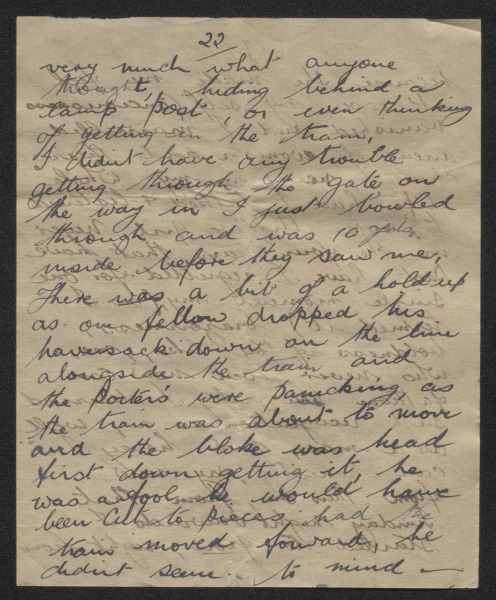 22
very much what anyone
thought, hiding behind a
lamp post, or even thinking
of getting the train,
I didn't have any trouble
getting through the gate on
the way in I just bowled
through and was 10 yds
inside before they saw me.
There was a bit of a hold up
as one fellow dropped his
haversack down on the line
alongside the train and
the porters were panicking, as
the train was about to move
and the bloke was head
first down getting it, he
was a fool he would have
been cut to pieces had the
train moved forward he
didn't seem to mind –